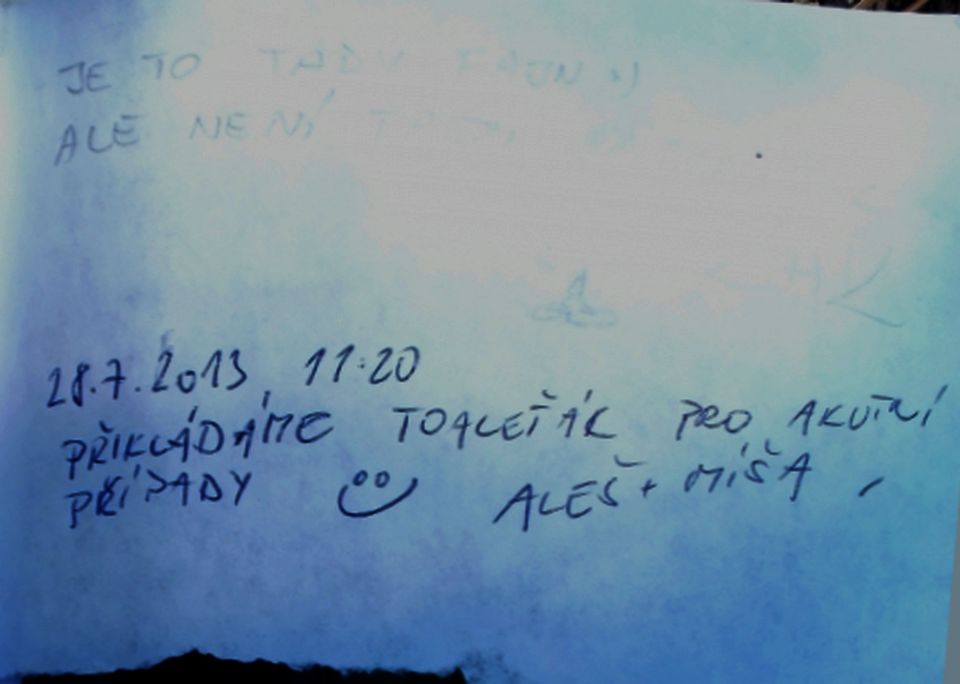 JE TO TADY FAJN :)
ALE NENÍ
28.7.2013 11:20
PŘIKLÁDÁME TOALEŤÁK PRO AKUTNÍ
PŘÍPADY ALEŠ + MÍŠA